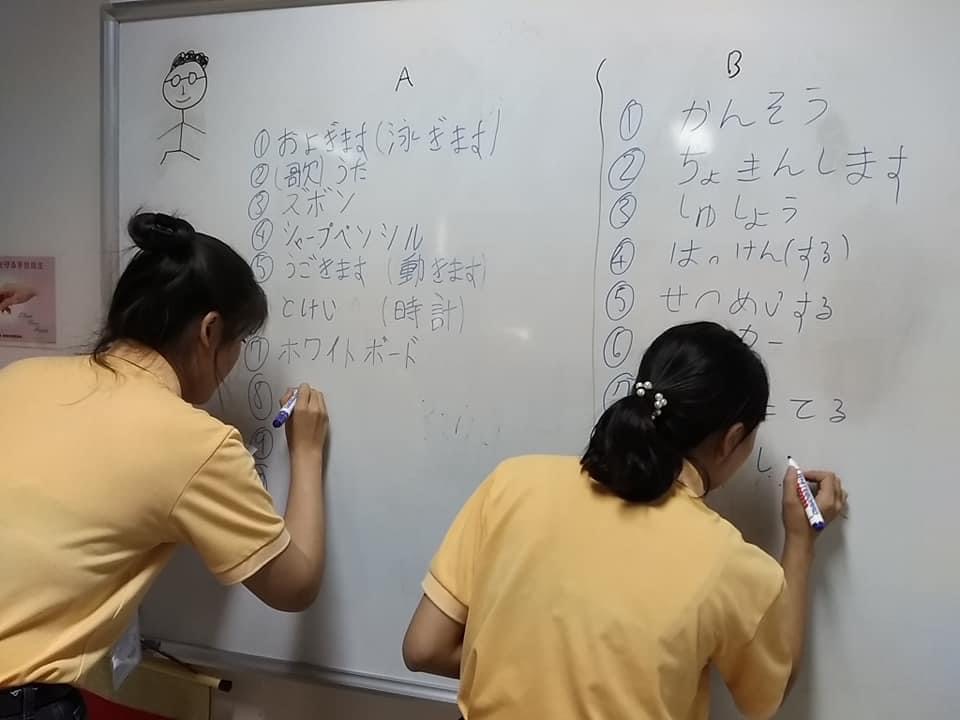 A
① およぎます(泳ぎます)
② (歌) うた
③ ズボン
④ シャープペンシル
⑤ うごきます (動きます)
とけい (時計)
⑦ ホワイトボード
⑧
⑨
B
① かんそう
② ちょきんします
③ しゅしょう
④ はっけん(する)
⑤ せつめいする
⑥ カー
⑦ てる
し